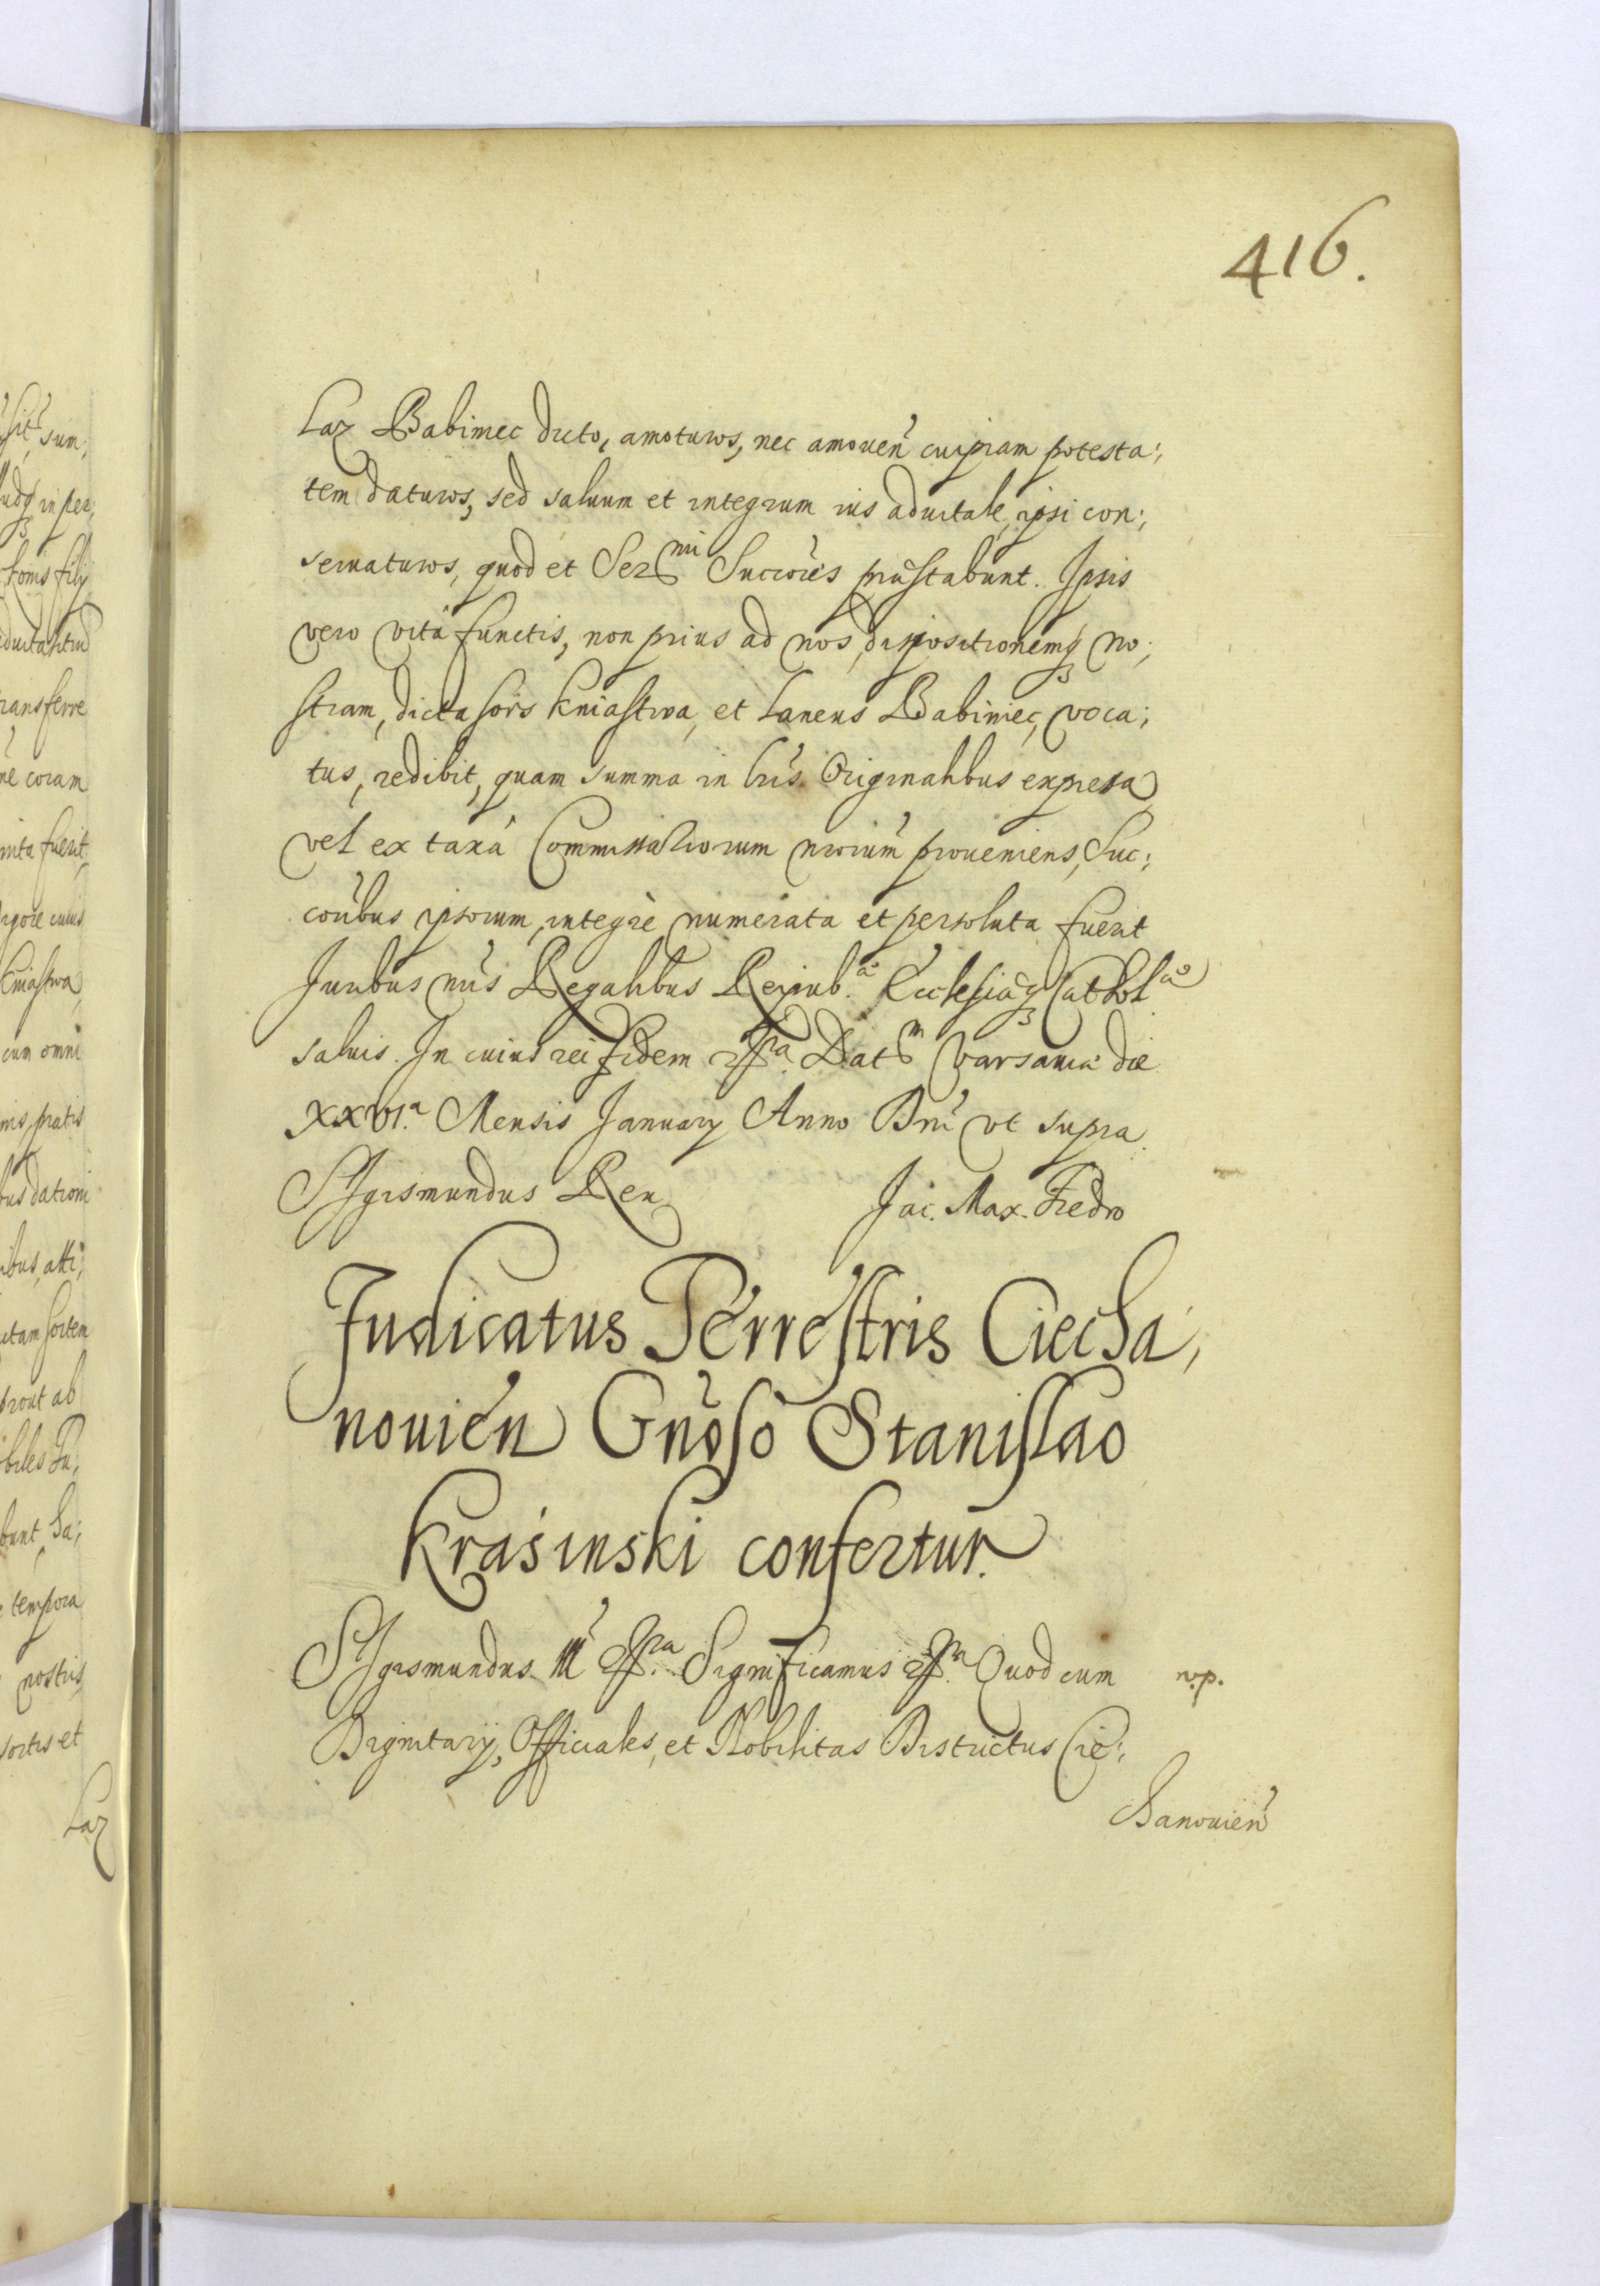 416.
Łaz Babiniec dicto, amoturos, nec amouen̄ cuipiam potesta:,
tem daturos, sed saluum et integrum ius aduitale, ipsi con:,
seruaturos, quod et Ser^mi Succōres prӕstabunt. Ipsis
vero vitâ functis, non prius ad nos, dispositionemq̢ no:,
stram, dicta sors Kniastwa, et Laneus Babiniec, voca:,
tus, redibit, quam summa in lrīs Originalibus expressa
vel ex taxâ Commissariorum nrōrum̄ proueniens, Suc:,
cōribus ipsorum, integrè numerata et persoluta fuerit
Juribus nrīs Regalibus Reipub^ӕ. Ecclesiӕq̢ Cathol^cӕ
saluis. In cuius rei fidem ꝛc̄^ra. Dat^m Varsauiӕ die
XXVI.^a Mensis January Anno Dnī vt supra.
SIgismundus Rex Jac. Max. Fredro
Judicatus Terrestris Ciecha,
nouien̄ Gn̄oso Stanislao
Krasinski confertur.
SIgismundus III ꝛc̄^ra. Significamus ꝛc̄^ra. Quod cum n.p.
Dignitarij, Officiales, et Nobilitas Districtus Cie:,
chanouien̄
sit, sum:,
filij
transferre
coram
fuerit,
cuius
Kniastwa,
cum omni
pratis
sortem
prout ab
tempora
nostris
sortis et
Łaz